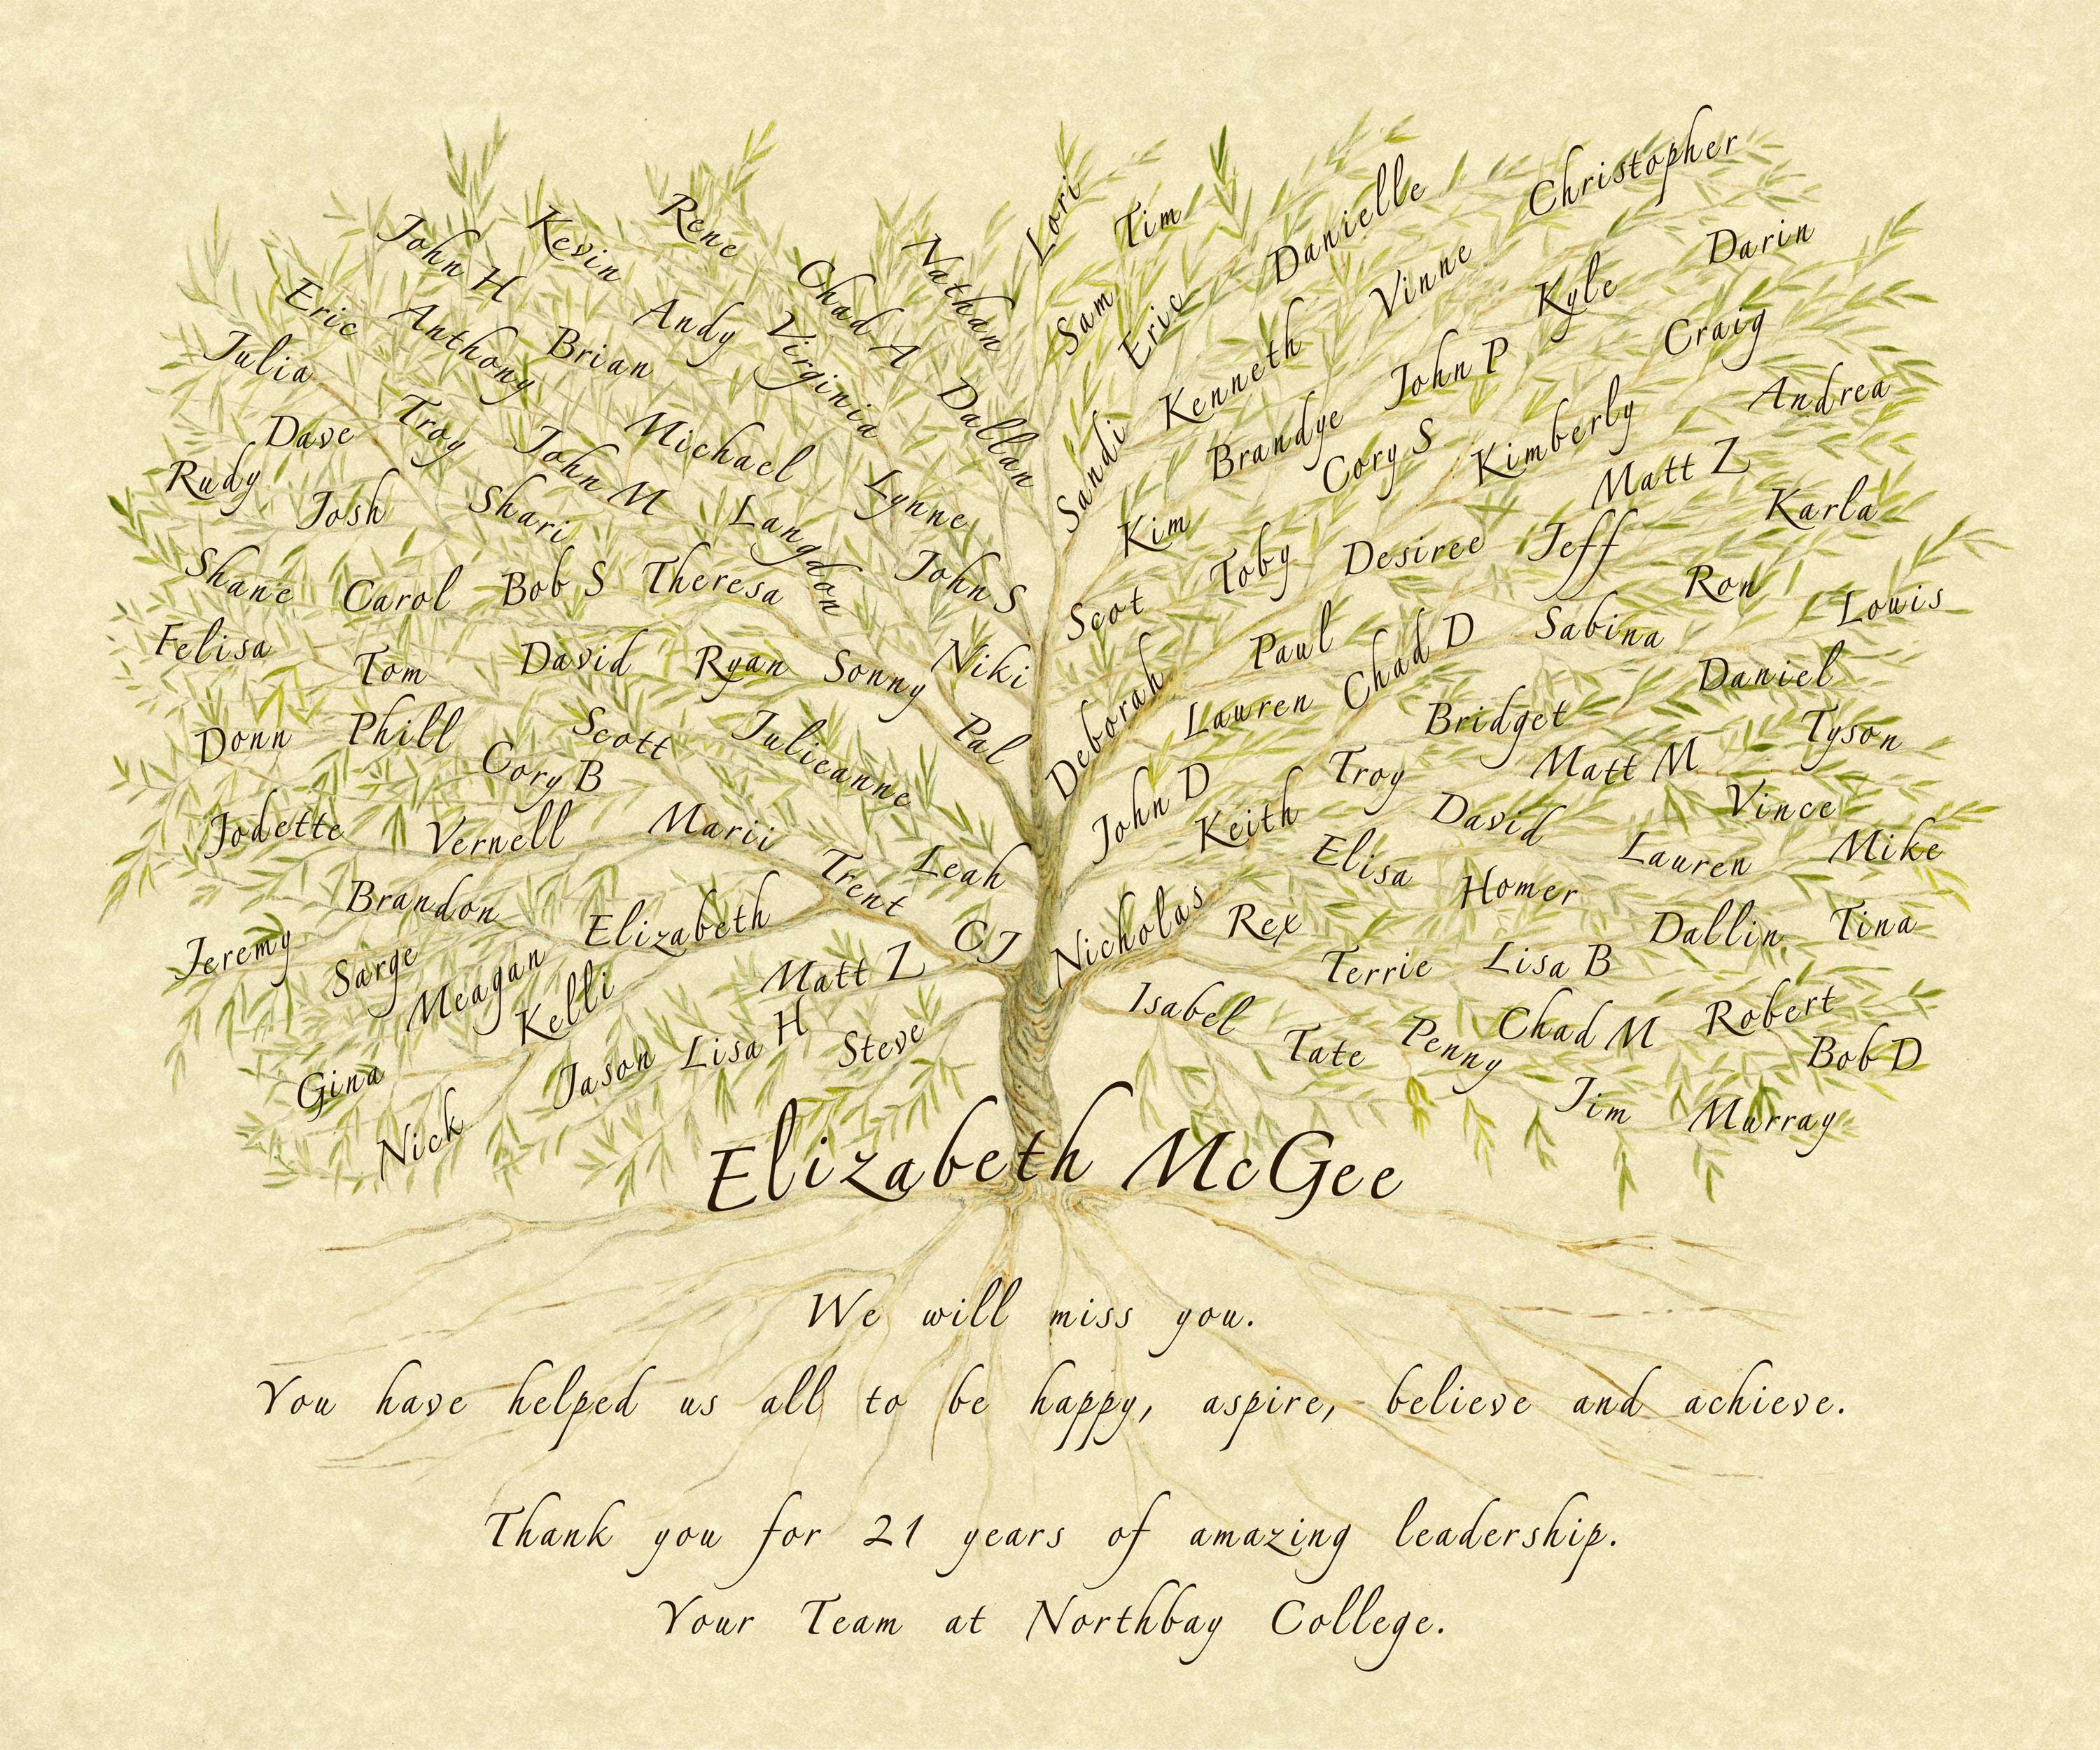 Lori
Christopher
Rene
Tim
Danielle
John H
Kevin
Nathan
Darin
Chad A
Vinne
Kyle
Eric
Anthony
Andy
Virginia
Sam
Eric
Craig
Julia
Brian
Kenneth
John P
Dave
Troy
Michael
Dallan
Brandye
Cory S
Kimberly
Andrea
Rudy
John M
Lynne
Sandi
Matt Z
Josh
Shari
Langdon
Kim
Karla
Shane
Carol
Bob S
Theresa
John S
Scot
Toby
Desiree
Jeff
Ron
Louis
Felisa
Tom
David
Ryan
Sonny
Niki
Paul
Chad D
Sabina
Daniel
Donn
Phill
Cory B
Scott
Julieanne
Pal
Deborah
Lauren
Bridget
Tyson
Jodette
Vernell
Marii
John D
Keith
Troy
Matt M
David
Vince
Brandon
Trent
Leah
Elisa
Homer
Lauren
Mike
Jeremy
Sarge
Meagan
Elizabeth
CJ
Nicholas
Rex
Terrie
Lisa B
Dallin
Tina
Kelli
Matt Z
Isabel
Gina
Nick
Jason
Lisa H
Steve
Tate
Penny
Chad M
Robert
Bob D
Jim
Murray
Elizabeth McGee
We will miss you.
You have helped us all to be happy, aspire, believe and achieve.
Thank you for 21 years of amazing leadership.
Your Team at Northbay College.